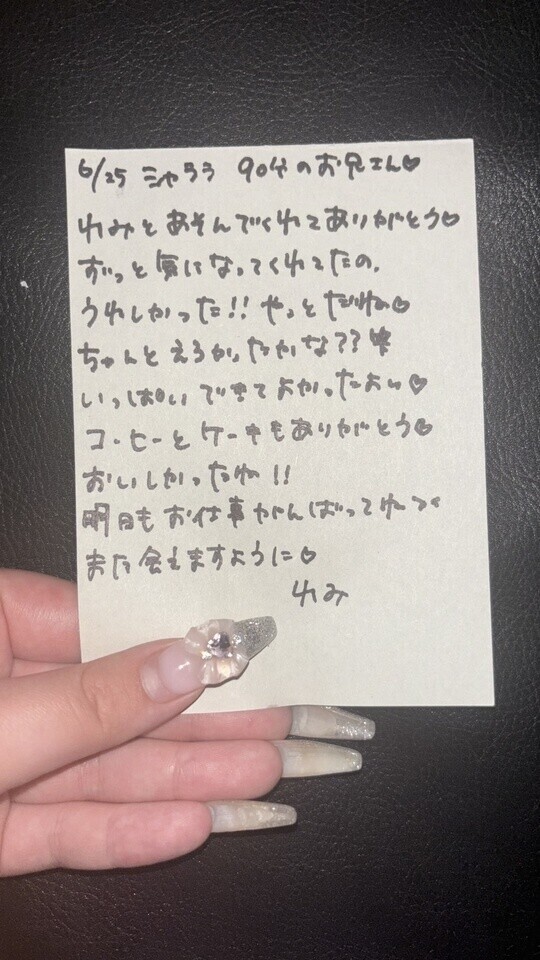 6/25 シャララ 90分のお兄さん♡
れみとあそんでくれてありがとう♡
ずっと気になってくれてたの、
うれしかった!! やっとだね♡
ちゃんとえろかったかな??
いっぱいできてよかったよぉ♡
コーヒーとケーキもありがとう♡
おいしかったね!!
明日もお仕事がんばってね><
また会えますように♡
れみ